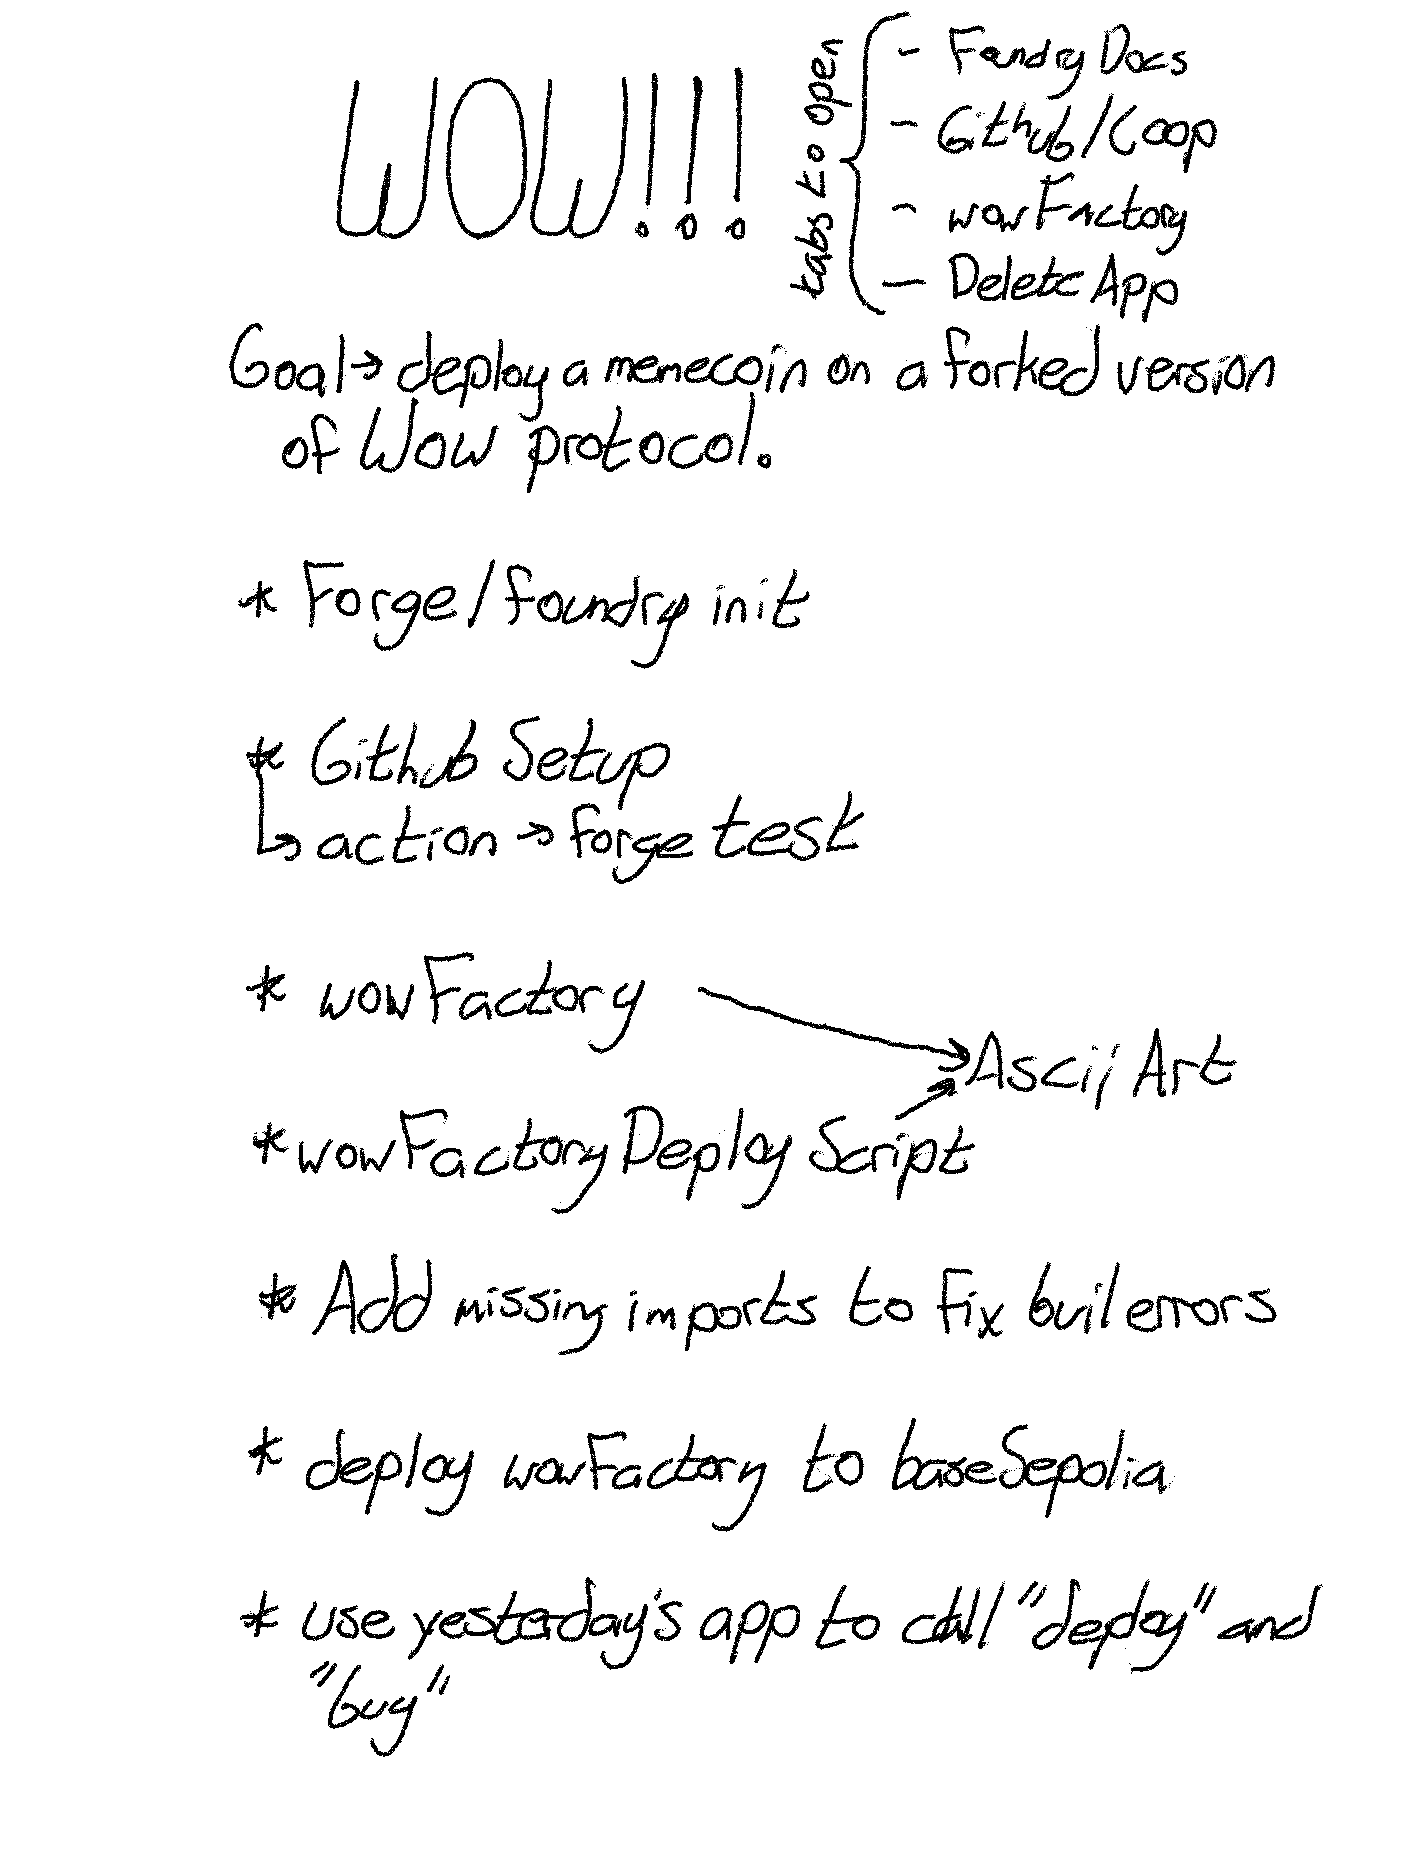 WOW!!!
tabs to open
- Foundry Docs
- Github/Coop
- wowFactory
- Delete App
Goal → deploy a memecoin on a forked version
of WOW protocol.
* Forge/foundry init
* Github Setup
↳ action → forge test
* wowFactory
Ascii Art
* wowFactory Deploy Script
* Add missing imports to fix buil errors
* deploy wowFactory to baseSepolia
* use yesterday's app to call "deploy" and
"buy"